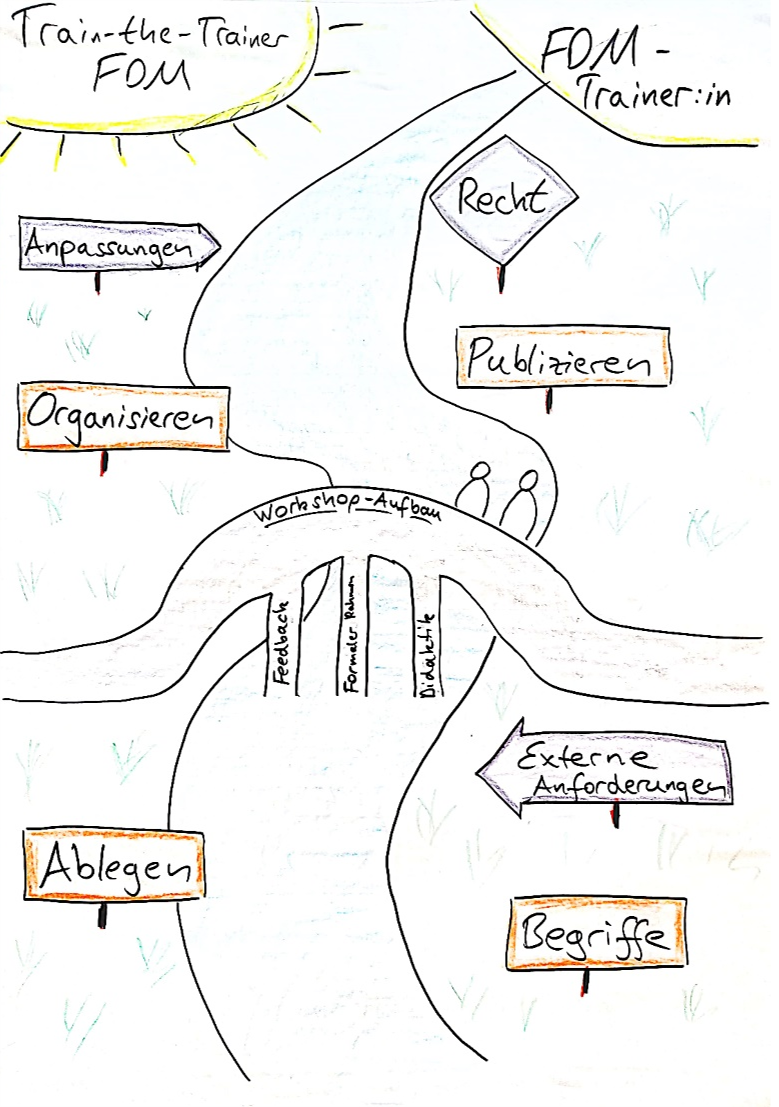 Train-the-Trainer
FDM
FDM -
Trainer:in
Recht
Anpassungen
Publizieren
Organisieren
Workshop-Aufbau
Feedback
Formaler Rahmen
Didaktik
Externe
Anforderungen
Ablegen
Begriffe